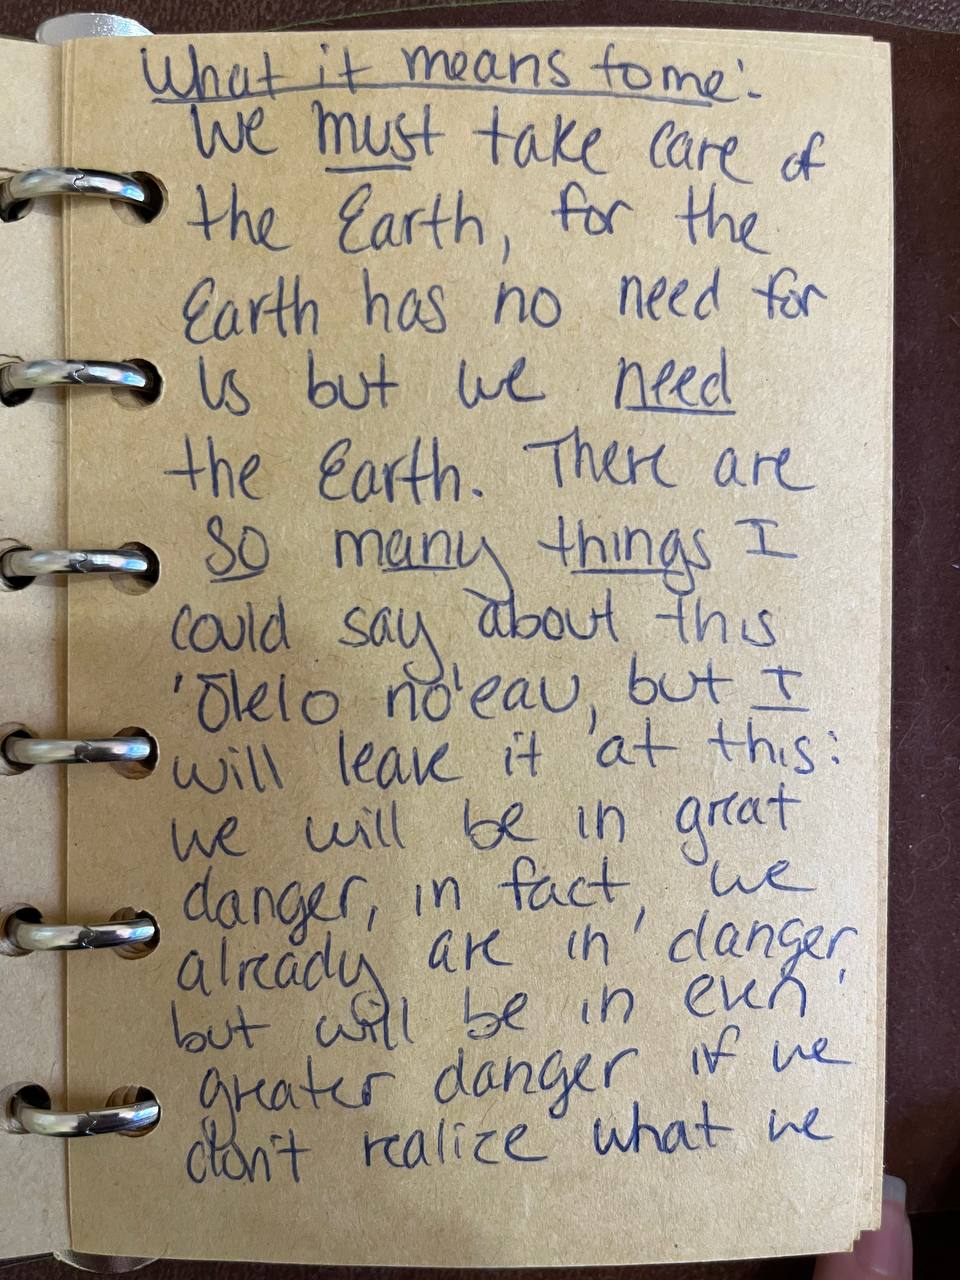 What it means to me:
We must take care of
the Earth, for the
Earth has no need for
Us but we need
the Earth. There are
so many things I
could say about this
'Ōlelo no'eau, but I
will leave it at this:
we will be in great
danger, in fact, we
already are in danger,
but will be in even
greater danger if we
don't realize what we